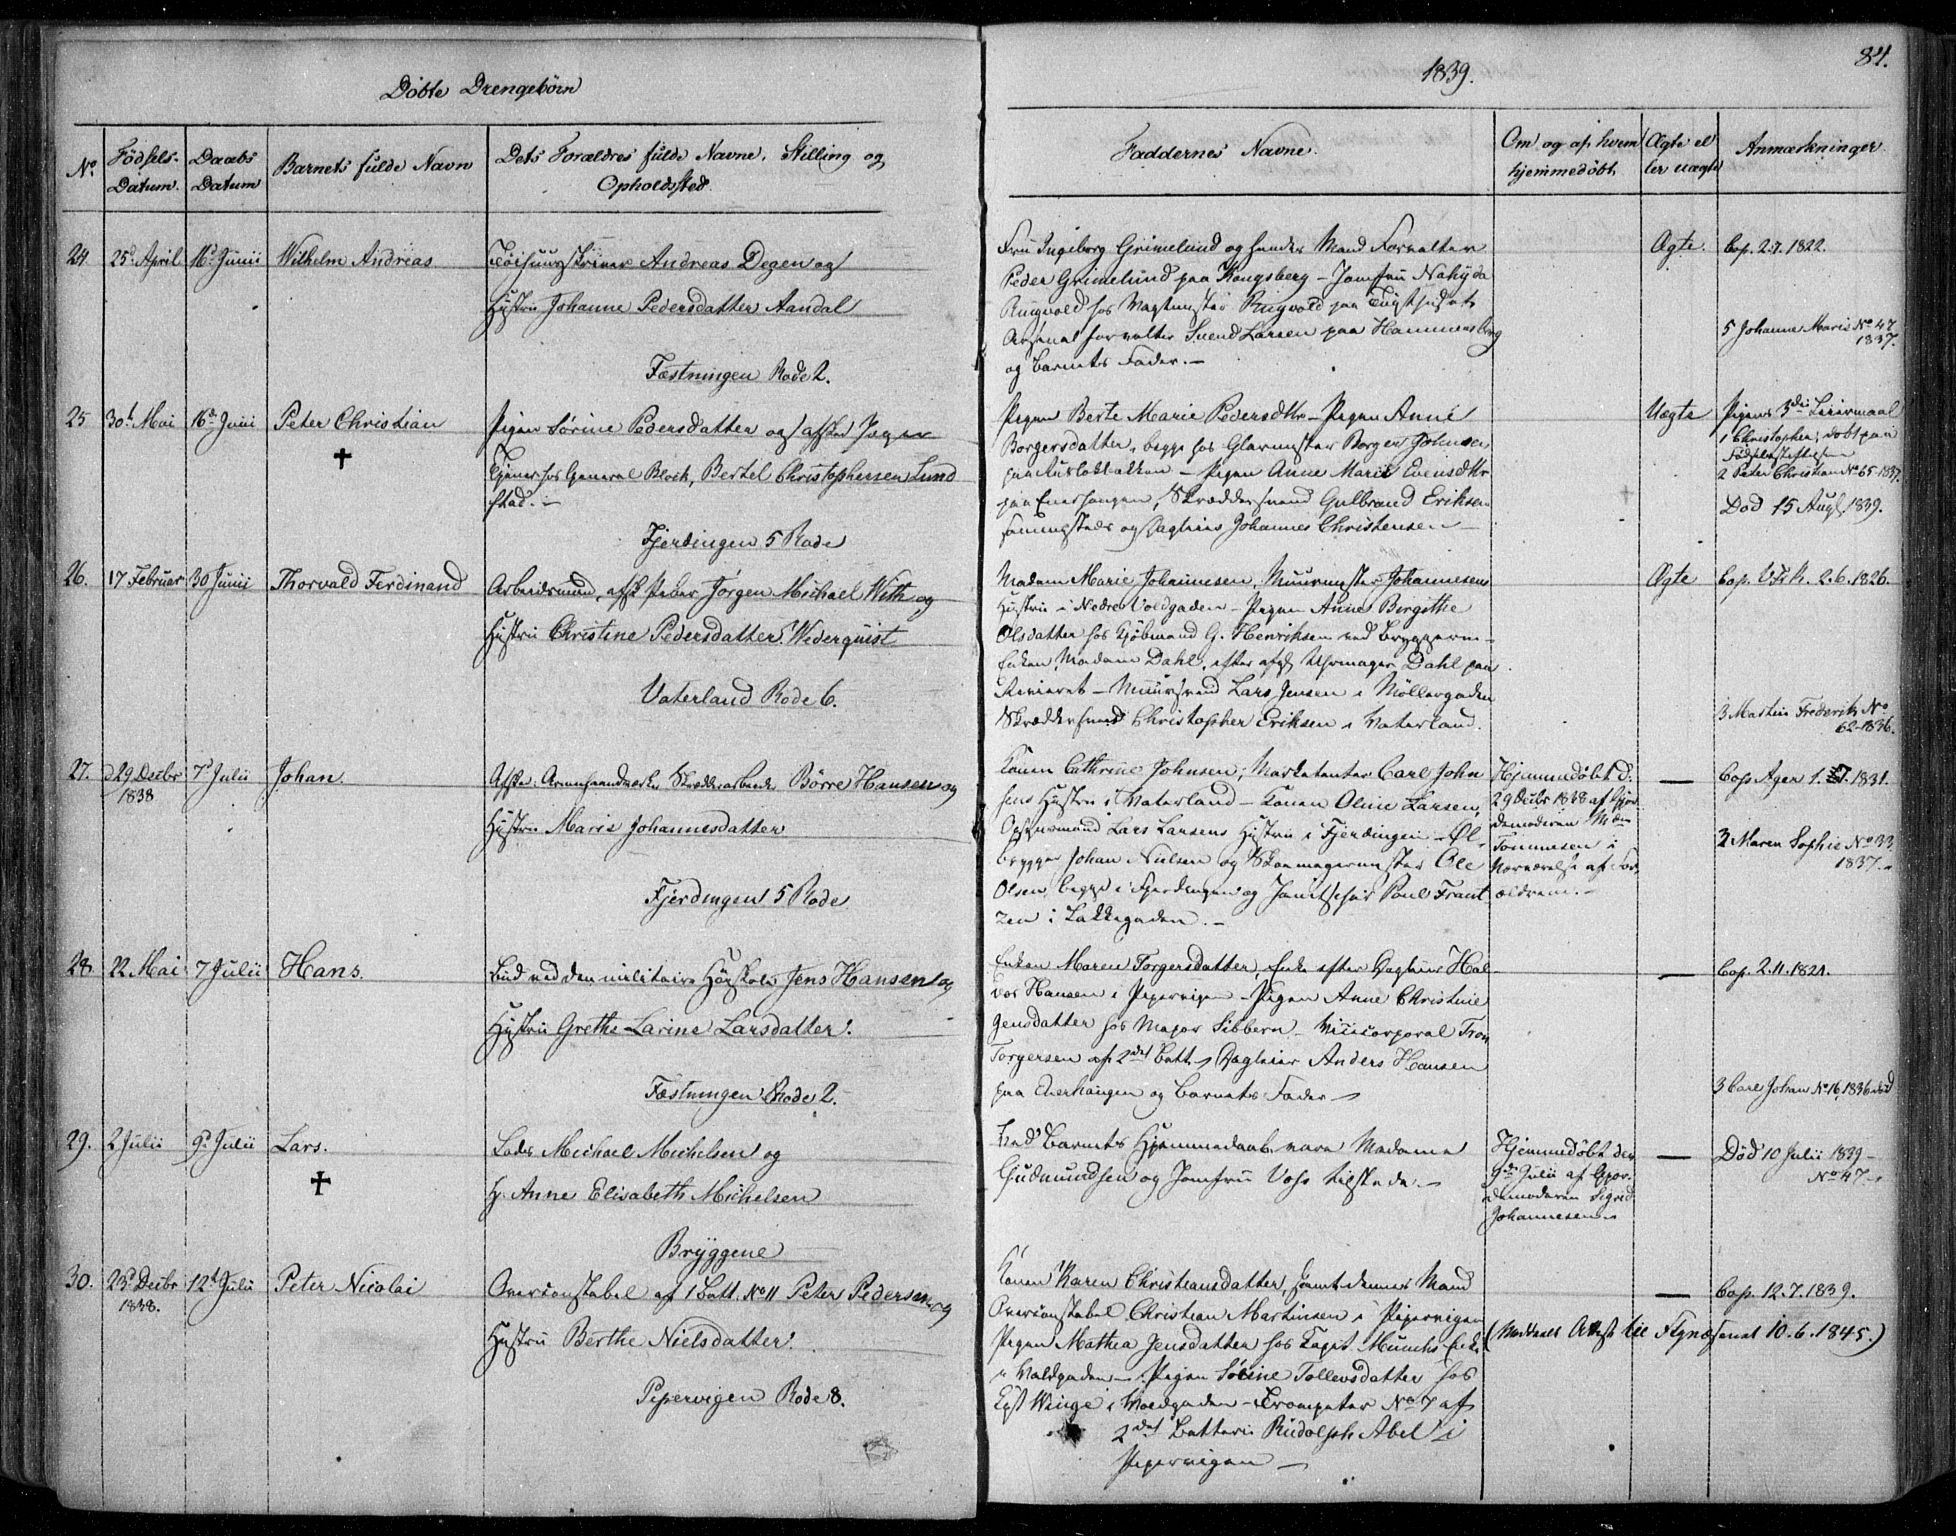 Döbte Drengebörn
1839.
84.
No
Födsels-Datum.
Daabs Datum
Barnets fulde Navn
Dets Forældres fulde Navne, Stilling og Opholdssted.
Faddernes Navne.
Om og af hvem hjemmedöbt
Ægte eller uægte
Anmærkninger
24 25d April 16d Junii Wilhelm Andreas
Andreas Degen og
Hustru Johanne Pedersdatter Aandal
Fæstningen Rode 2.
Fru Ingeborg Grimelund og hendes Mand Forvalter
Peder Grimelund paa Kongsberg - Jomfru
Ringvold hos Vagtmester Ringvold paa Tugthuset
Arsenalforvalter Svend Larsen paa Hammersborg
og Barnets Fader. -
Ægte. Cop. 2.7.1822.
5 Johanne Marie No 47
1837.
25 30t Mai 16d Junii Peter Christian
✝
Pigen Sörine Pedersdatter og afsked Jæger
Tjener hos General Block, Bertel Christophersen Lund
stad. -
Fjerdingen 5 Rode
Pigen Berte Marie Pedersdtr - Pigen Anne
Borgersdatter, begge hos Glarmester Borger Johnsen
- Pigen Anne Marie Evensdtr
paa Enerhaugen, Skræddersvend Gulbrand Eriksen
sammesteds og Dagleier Johannes Christensen -
Uægte Pigens 3die Leiermaal
1 Christopher, döbt paa
Födselsstiftelsen
2 Peter Christian No 65-1837.
Död 15 Augt. 1839.
26. 17 Februar 30 Junii Thorvald Ferdinand
Arbeidsmand, afsk. Jörgen Michael With og
Hustru Christine Pedersdatter Wederquist
Vaterland Rode 6.
Madam Marie Johannesen, Muurmester Johannesens
Hustru i Nedre Voldgaden - Pigen Anne Birgithe
Olsdatter hos Kjöbmand G. Henriksen ved Bryggerne -
Enken Madam Dahl, efter afg. Uhrmager Dahl paa
- Muursvend Lars Jensen i Möllergaden
Skræddersvend Christopher Eriksen i Vaterland.
Ægte Cop. V.Frk. 2.6.1826.
3 Martin Frederik No
62-1836.
27. d 29 Decbr 7d Julii Johan.
1838
Börre Hansen og
Hustru Marie Johannesdatter
Fjerdingen 5 Rode
Konen Cathrine Johnsen, Marketenter Carl John
sens Hustru i Vaterland - Konen Oline Larsen,
Opsynsmand Lars Larsens Hustru i Fjerdingen - Öl-
brygger Johan Nielsen og Skomagermester Ole
Olsen, begge i Fjerdingen og Janitschar Paul Frant
zen i Lakkegaden. -
Hjemmedöbt d.
29 Decbr 1838 af Gjor-
demoderen Mdm
Tommesen i
Nærværelse af For-
ældrene. -
— Cop. Ager 1. 1831.
2 Maren Sophie No 33
1837. -
28. 22 Mai 7 Julii Hans.
Bud ved den militaire Höiskole Jens Hansen og
Hustru Grethe Larine Larsdatter.
Fæstningen Rode 2.
Enken Maren Torgersdatter, Enke efter Dagleier Hal-
vor Hansen i Pipervigen - Pigen Anne Christine
Jensdatter hos Major Sibbern - Vicecorporal Tron
Torgersen af 2det Batt. - Dagleier Anders Hansen
paa Enerhaugen og Barnets Fader -
— Cop. 2.11.1821.
3 Carl Johan No 16, 1836 död
29. 2 Julii 9d Julii Lars.
✝
Lods Michael Michelsen og
H. Anne Elisabeth Michelsen
Bryggene
Ved Barnets Hjemmedaab vare Madame
Gudmundsen og Jomfru Voss tilstede. -
Hjemmedöbt den
9de Julii af Gjor-
demoderen Sigrid
Johannesen -
— Död 10 Julii 1839 -
No 47. -
30. 23d Decbr 12t Julii Peter Nicolai
1838.
Overconstabel af 1 Batt. No 11 Peter Pedersen og
Hustru Berthe Nielsdatter.
Pipervigen Rode 8.
Konen Karen Christiansdatter, samt dennes Mand
Overconstabel Christian Martinsen i Pipervigen
Pigen Mathea Jensdatter hos Capit. Munchs Enke
i Voldgaden - Pigen Sörine Tollevsdatter hos
Winge i Voldgaden - Trompeter No 7 af
2det Batteri Rudolph Abel i
Pipervigen -
— Cop. 12.7.1839.
(Meddeelt Attest til 10.6.1845.)